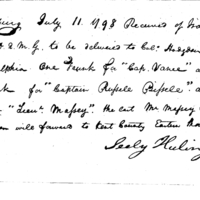 July 11. 1798 Received of
A.Q.M.G. to be delivered to Col. Hodgdon
One Trunk for "Cap. Vance" a
for "Captain Russell Bissell." a
"Lieut. Massey." the last Mr. Massey
will forward to Kent County Easton
Seely Huling